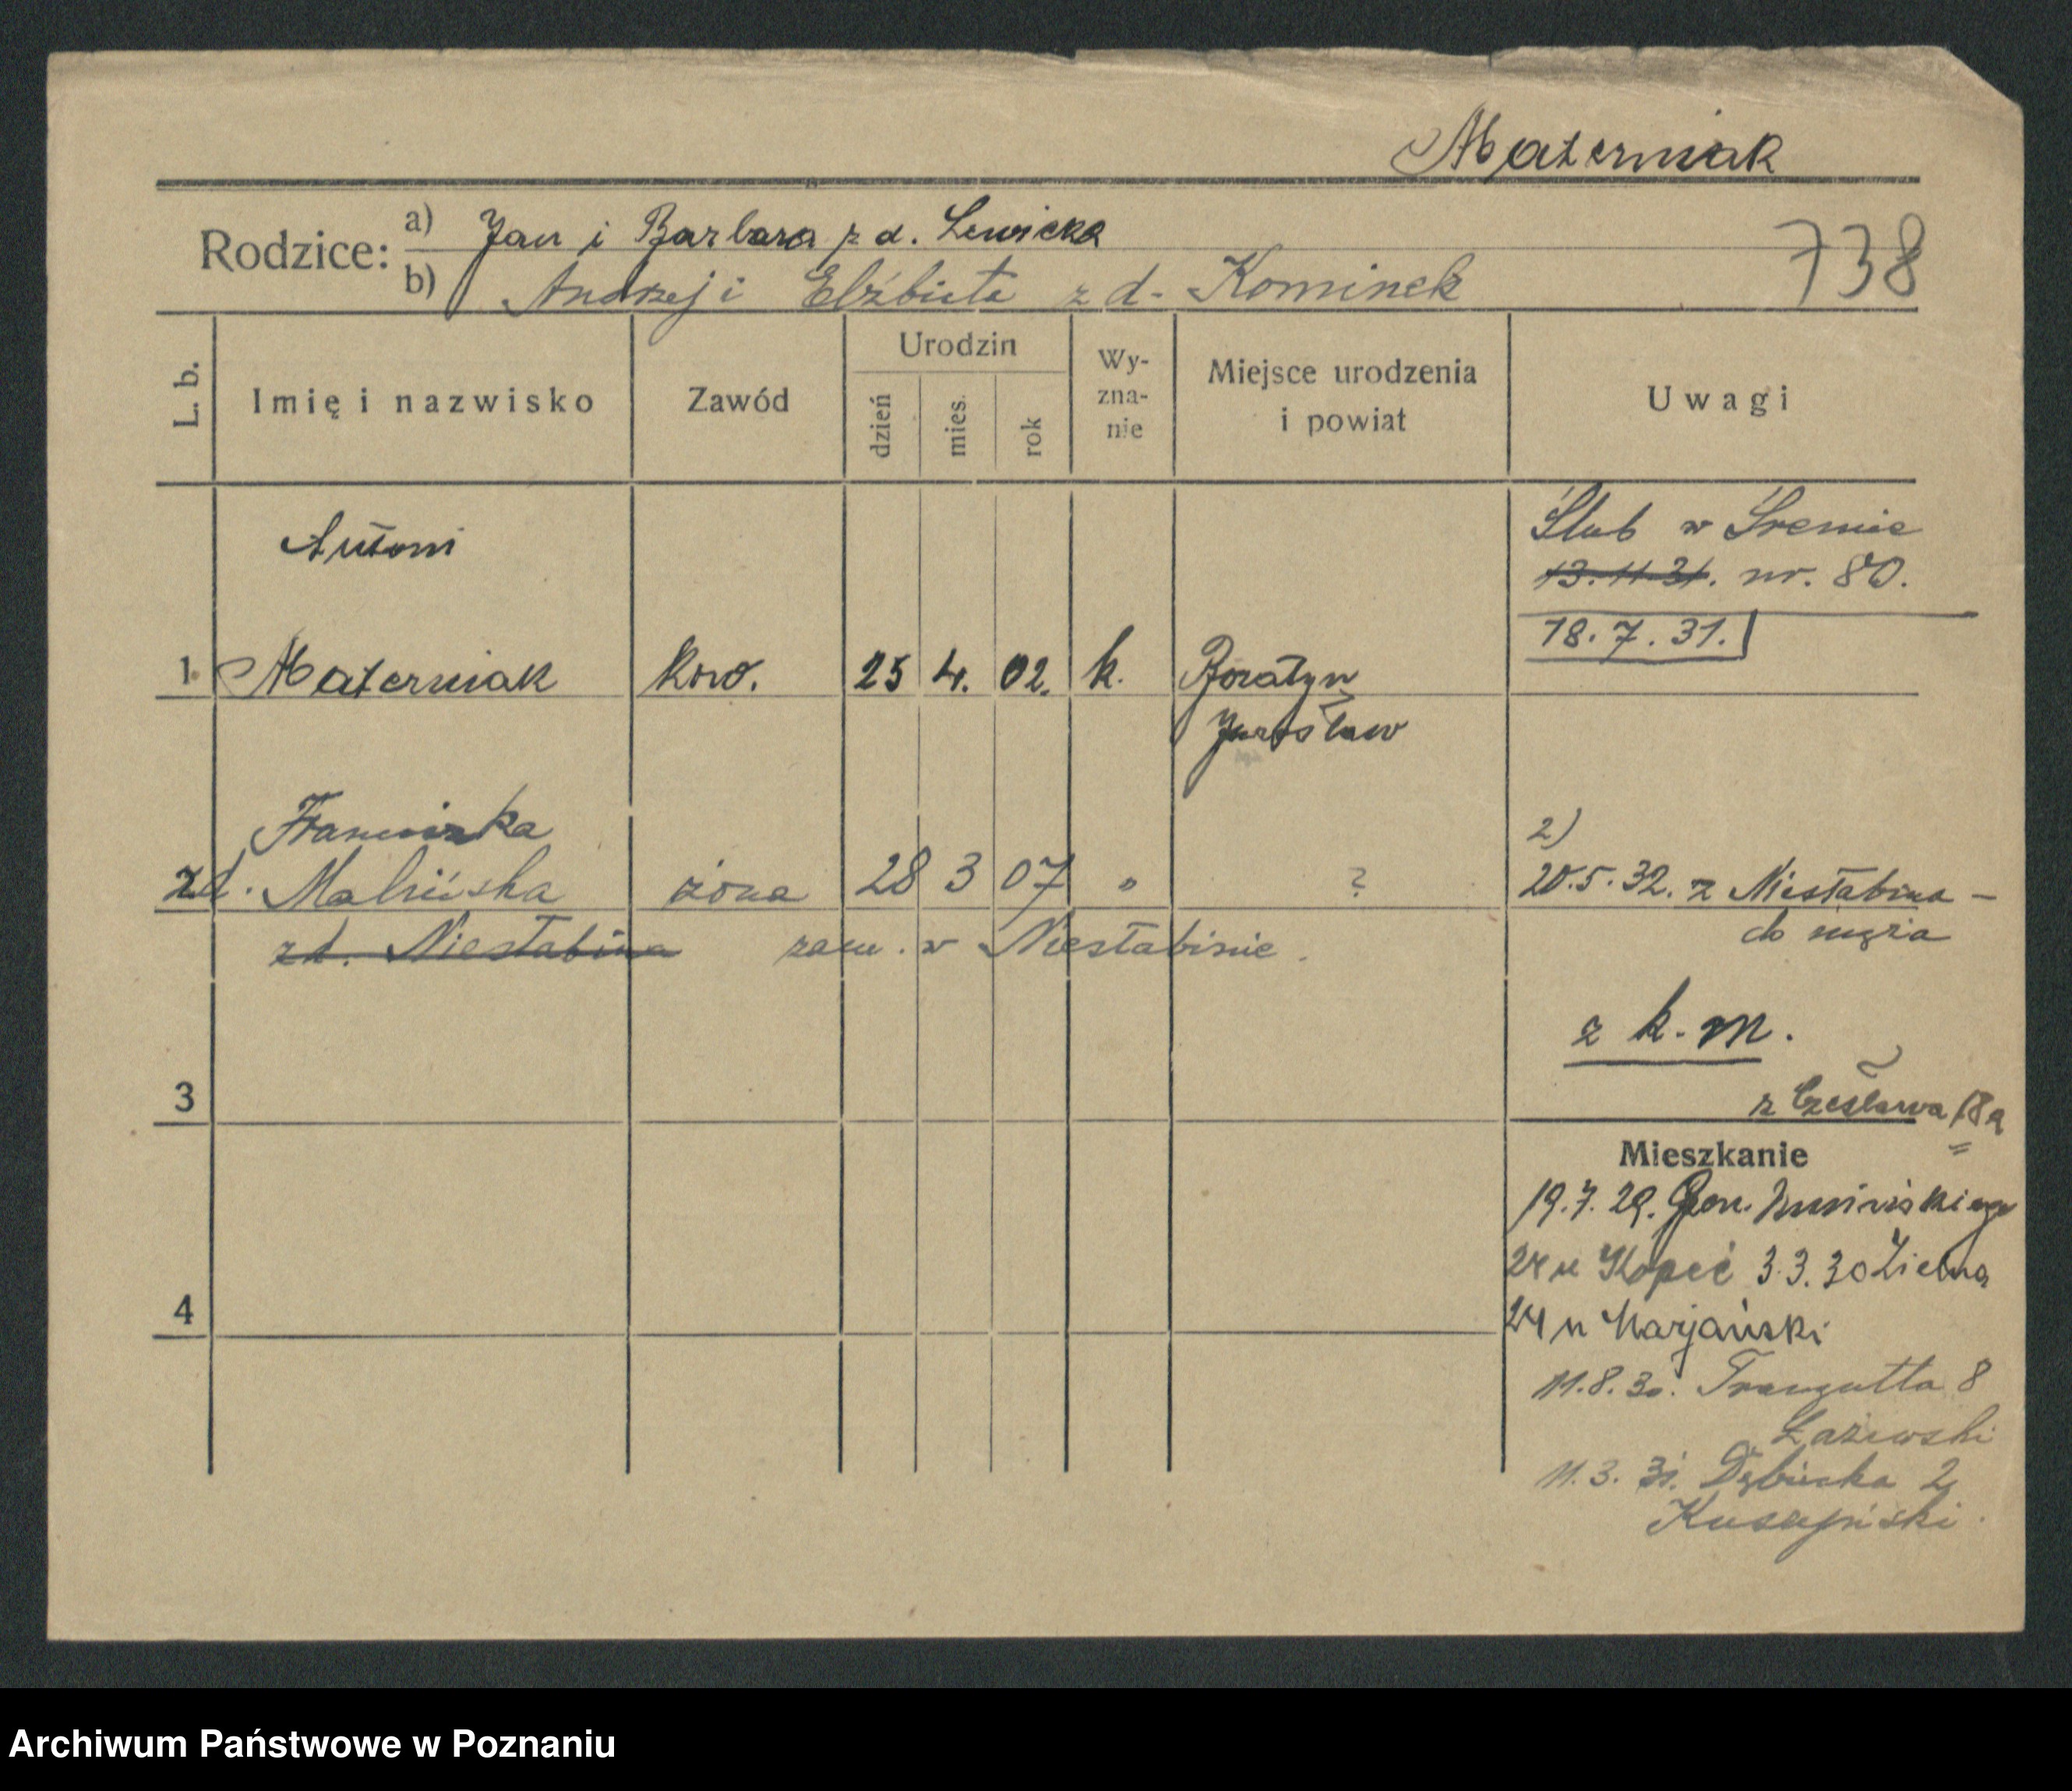 Materniak
738
Rodzice:
a) Jan i Barbara z d. Lewicka
b) Andrzej i Elżbieta z d. Kominek
L. b.
Imię i nazwisko
Zawód
Urodzin
dzień
mies.
rok
Wy-
zna-
nie
Miejsce urodzenia
i powiat
Uwagi
Antoni
1. Materniak
25 4. 02. k.
Jarosław
Ślub w Śremie
13.11.31. nr. 80.
18.7.31.
Franciszka
2 zd. Malińska żona 28 3 07 " ?
zd. Niesłabina zam. w Niesłabinie.
2)
20.5.32. z Niesłabina -
do męża
z k. m.
z Czesława 18a
3
Mieszkanie
19.7.29. Gen.
24 u Kopeć 3.3.30 Zielna
4
24 u Marjański
11.8.30. Traugutta 8
Łażewski
11.3.31. Dębińska 2